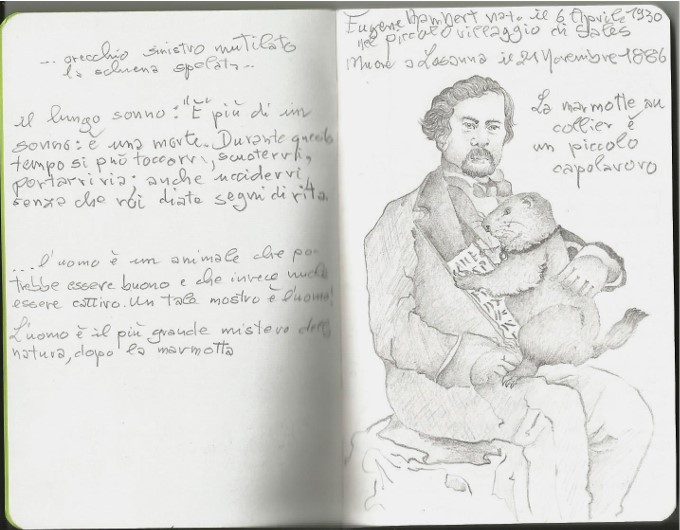 ... orecchio sinistro mutilato
la schiena spelata...
il lungo sonno: "È più di un
sonno: è una morte. Durante questo
tempo si può toccarvi, scuotervi,
portarvi via; anche uccidervi,
senza che voi diate segni di vita.
...l'uomo è un animale che po-
trebbe essere buono e che invece vuole
essere cattivo. Un tale mostro è l'uomo!
L'uomo è il più grande mistero della
natura, dopo la marmotta
Eugene Rambert nato il 6 Aprile 1930
nel piccolo villaggio di Sales
Muore a Losanna il 21 Novembre 1886
La marmotte au
collier è
un piccolo
capolavoro